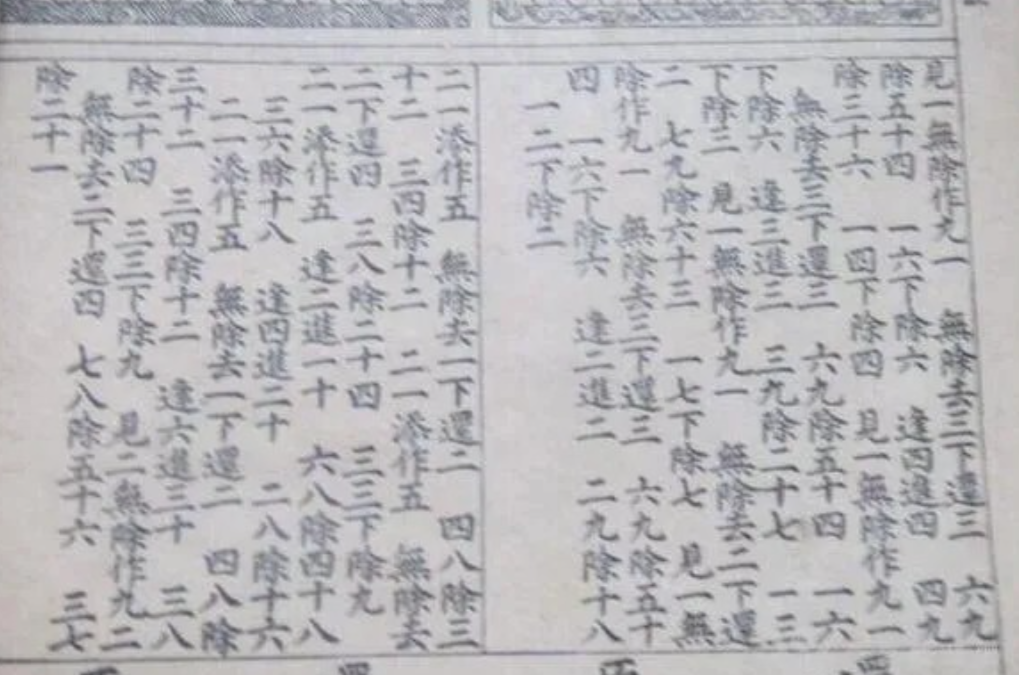 見一無除作九一　無除去三下還三　六九
除五十四　一六下除六　逢四進四　四九
除三十六　一四下除四　見一無除作九一
無除去三下還三　六九除五十四　一六
下除六　逢三進三　三九除二十七　一三
下除三　見一無除作九一　無除去二下還
二　七九除六十三　一七下除七　見一無
除作九一　無除去三下還三　六九除五十
四　一六下除六　逢二進二　二九除十八
一二下除二
二一添作五　無除去一下還二　四八除三
十二　三四除十二　二一添作五　無除去
二下還四　三八除二十四　三三下除九
二一添作五　逢二進一十　六八除四十八
三六除十八　逢四進二十　二八除十六
二一添作五　無除去一下還二　四八除
三十二　三四除十二　逢六進三十　三八
除二十四　三三下除九　見二無除作九二
無除去二下還四　七八除五十六　三七
除二十一